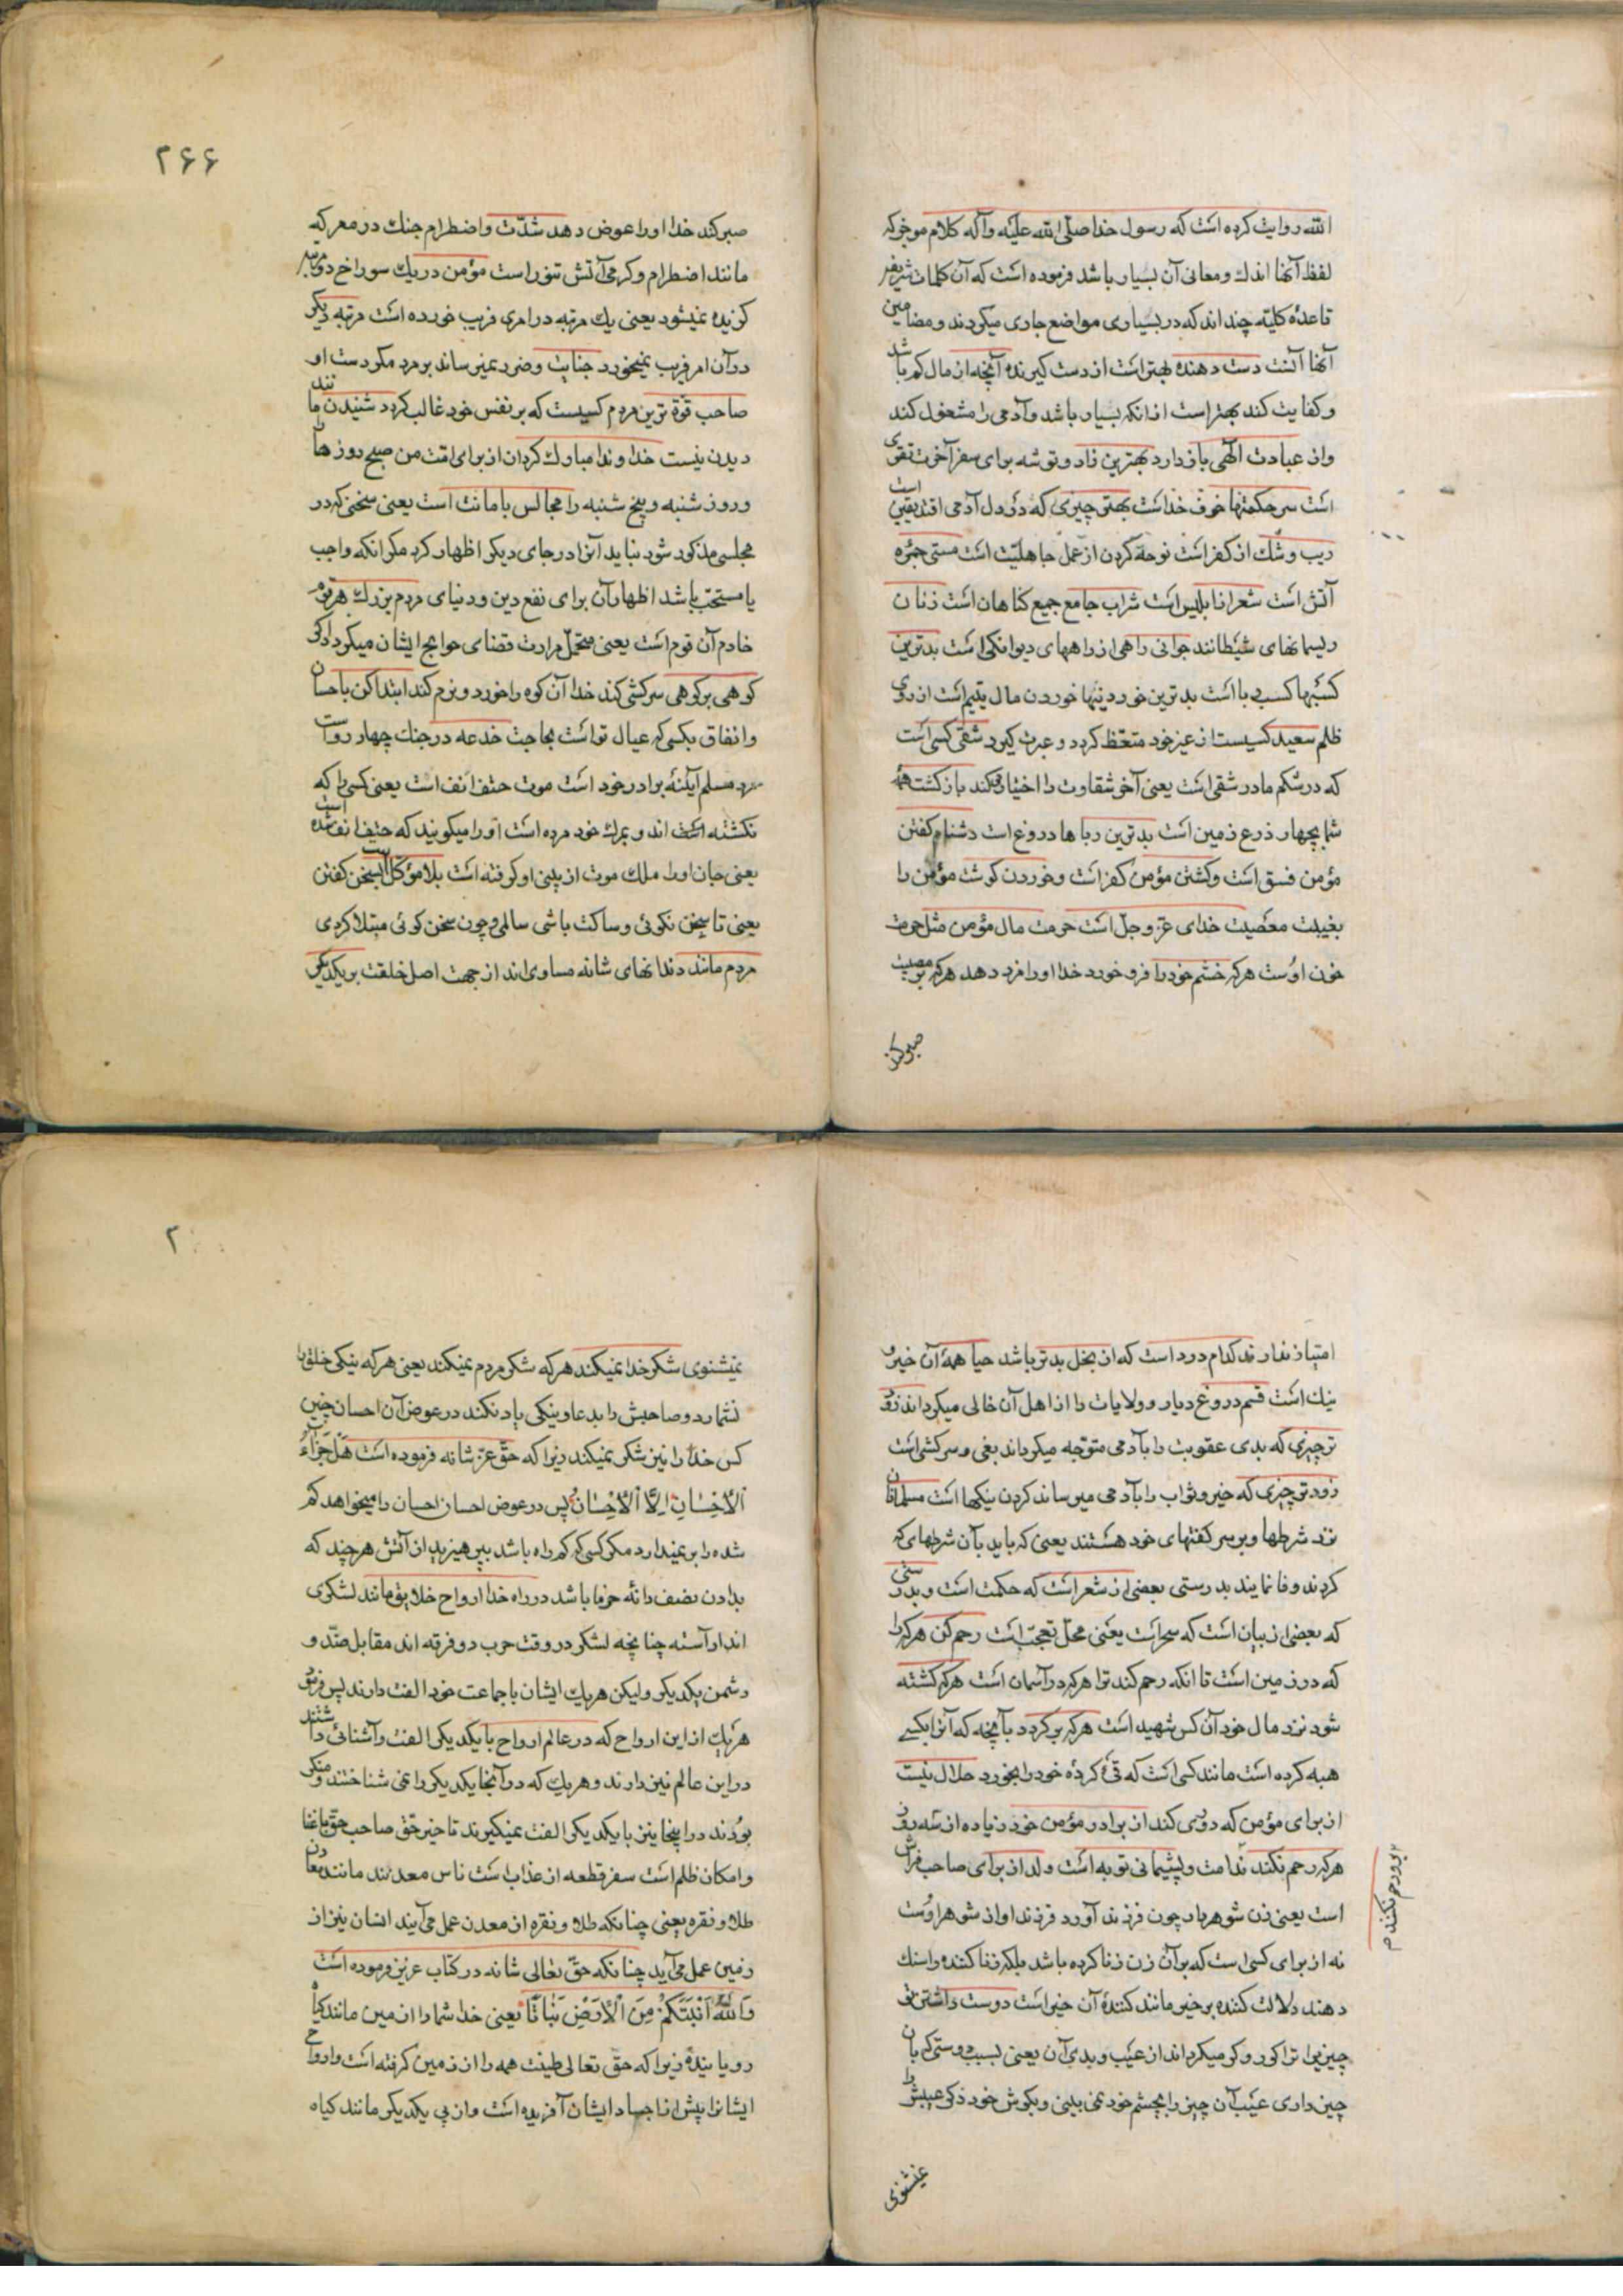 الله روایت کرده است که رسول خدا صلی الله علیه وآله کلام موجز که
لفظ آنها اندک ومعانی آن بسیار باشد فرموده است که آن کلمات شریفه
قاعدهٔ کلیّه چند اند که در بسیاری مواضع جاری میکردند ومضامین
آنها آنست دست دهنده بهتر است از دست کیرنده آنچه از مال کم باشد
وکفایت کند بهتر است از انکه بسیار باشد وآدمی را مشغول کند
واز عبادت الهی باز دارد بهترین زاد وتوشه برای سفر آخرت تقوی
است سر حکمتها خوف خداست بهتر چیزی که در دل آدمی افتد یقین است
ریب وشک از کفر است نوحه کردن از عمل جاهلیّت است مستی جمرهٔ
آتش است شعر از ابلیس است شراب جامع جمیع کناهان است زنان
ریسمانهای شیطانند جوانی راهی از راههای دیوانکی است بدترین
کسبها کسب ربا است بدترین خوردنیها خوردن مال یتیم است از روی
ظلم سعید کسیست از غیر خود متعظ کردد وعبرت کیرد شقی کسی است
که در شکم مادر شقی است یعنی آخر شقاوت را اختیار میکند بازکشت همهٔ
شما بچهار ذرع زمین است بدترین رباها دروغ است دشنام کفتن
مؤمن فسق است وکشتن مؤمن کفر است وخوردن کوشت مؤمن را
بغیبت معصیت خدای عزّ وجلّ است حرمت مال مؤمن مثل حرمت
خون اوست هرکه خشم خود را فرو خورد خدا اورا مزد دهد هرکه بر مصیبت
صبر کند
۲۶۶
صبر کند خدا اورا عوض دهد شدّت واضطرام جنک در معرکه
مانند اضطرام وکرمی آتش تنور است مؤمن در یک سوراخ دو مرتبه
کزیده نمیشود یعنی یک مرتبه در امری فریب خورده است مرتبه دیکر
در آن امر فریب نمیخورد جنایت وضرر نمیرساند بر مرد مکر دست او
صاحب قوّة ترین مردم کسیست که بر نفس خود غالب کردد شنیدن مانند
دیدن نیست خداوندا مبارک کردان از برای امّت من صبح روزها را
وروز شنبه وپنج شنبه را مجالس بامانت است یعنی سخنی که در
مجلسی مذکور شود نباید آنرا در جای دیکر اظهار کرد مکر انکه واجب
یا مستحب باشد اظهار آن برای نفع دین ودنیای مردم بزرک هر قوم
خادم آن قوم است یعنی متحمّل مرارت قضای حوایج ایشان میکردد اکر
کوهی بر کوهی سرکشی کند خدا آن کوه را خورد ونرم کند ابتدا کن باحسان
وانفاق بکسی که عیال تو است بحاجت خدعه در جنک چهار رواست
مرد مسلم آیینهٔ برادر خود است موت حتف انف است یعنی کسی را که
نکشته اند وبمرک خود مرده است اورا میکویند که حتف انف شده است
یعنی جان اورا ملک موت از بینی او کرفته است بلا مؤکل است بسخن کفتن
یعنی تا سخن نکوئی وساکت باشی سالمی وچون سخن کوئی مبتلا کردی
مردم مانند دندانهای شانه مساوی اند از جهت اصل خلقت بر یکدیکر
امتیاز ندارند کدام درد است که از بخل بدتر باشد حیا همهٔ آن خیر و
نیک است قسم دروغ دیار وولایات را از اهل آن خالی میکرداند زود
تر چیزی که بدی عقوبت را بآدمی متوجّه میکرداند بغی وسرکشی است
زود تر چیزی که خیر وثواب را بآدمی میرساند کردن نیکیها است مسلمانان
نزد شرطها وبر سر کفتهای خود هستند یعنی که باید بآن شرطهای که
کردند وفا نمایند بدرستی بعضی از شعر است که حکمت است وبدرستی
که بعضی از بیان است که سحر است یعنی محلّ تعجّب است رحم کن هرکه را
که در زمین است تا انکه رحم کند ترا هرکه در آسمان است هرکه کشته
شود نزد مال خود آن کس شهید است هرکه برکردد بآنچه که آنرا بکسی
هبه کرده است مانند کسی است که قی کردهٔ خود را بخورد حلال نیست
از برای مؤمن که دوری کند از برادر مؤمن خود زیاده از سه روز
هرکه رحم نکند ندامت وپشیمانی توبه است ولد از برای صاحب فراش
است یعنی زن شوهردار چون فرزند آورد فرزند او از شوهر اوست
نه از برای کسی است که بر آن زن زنا کرده باشد بلکه زنا کننده را سنک
دهند دلالت کننده بر خیر مانند کنندهٔ آن خیر است دوست داشتن تو
چیزیرا ترا کور وکر میکرداند از عیب وبدی آن یعنی بسبب دوستی که بآن
چیز داری عیب آن چیز را بچشم خود نمی بینی وبکوش خود ذکر عیبش را
برو رحم نکنند م
نمیشنوی
۲
نمیشنوی شکر خدا نمیکند هرکه شکر مردم نمیکند یعنی هرکه نیکی خلق را
نشمارد وصاحبش را بدعا ونیکی یاد نکند در عوض آن احسان چنین
کس خدا را نیز شکر نمیکند زیرا که حقّ عزّ شانه فرموده است هَلْ جَزَاءُ
الْاِحْسَانِ اِلَّا الْاِحْسَانُ پس در عوض احسان احسان را میخواهد کم
شده را بر نمیدارد مکر کسی که کم راه باشد بپرهیزید از آتش هرچند که
بدادن نصف دانهٔ خرما باشد در راه خدا ارواح خلایق مانند لشکری
اند آراسته چنانچه لشکر در وقت حرب دو فرقه اند مقابل ضدّ و
دشمن یکدیکر ولیکن هریک ایشان با جماعت خود الفت دارند پس فرقهٔ
هریک از این ارواح که در عالم ارواح با یکدیکر الفت وآشنائی داشتند
در این عالم نیز دارند وهریک که در آنجا یکدیکر را نمی شناختند ومنکر
بودند در اینجا نیز با یکدیکر الفت نمیکیرند تاخیر حقّ صاحب حقّ با غنا
وامکان ظلم است سفر قطعه از عذاب است ناس معدنند مانند معادن
طلا ونقره یعنی چنانکه طلا ونقره از معدن عمل می آیند انسان نیز از
زمین عمل می آید چنانکه حقّ تعالی شانه در کتاب عزیز فرموده است
وَاللهُ اَنْبَتَکُمْ مِنَ الْاَرْضِ نَبَاتًا یعنی خدا شما را از زمین مانند کیاه
رویانیده زیرا که حقّ تعالی طینت همه را از زمین کرفته است وارواح
ایشانرا پیش از اجساد ایشان آفریده است واز پی یکدیکر مانند کیاه